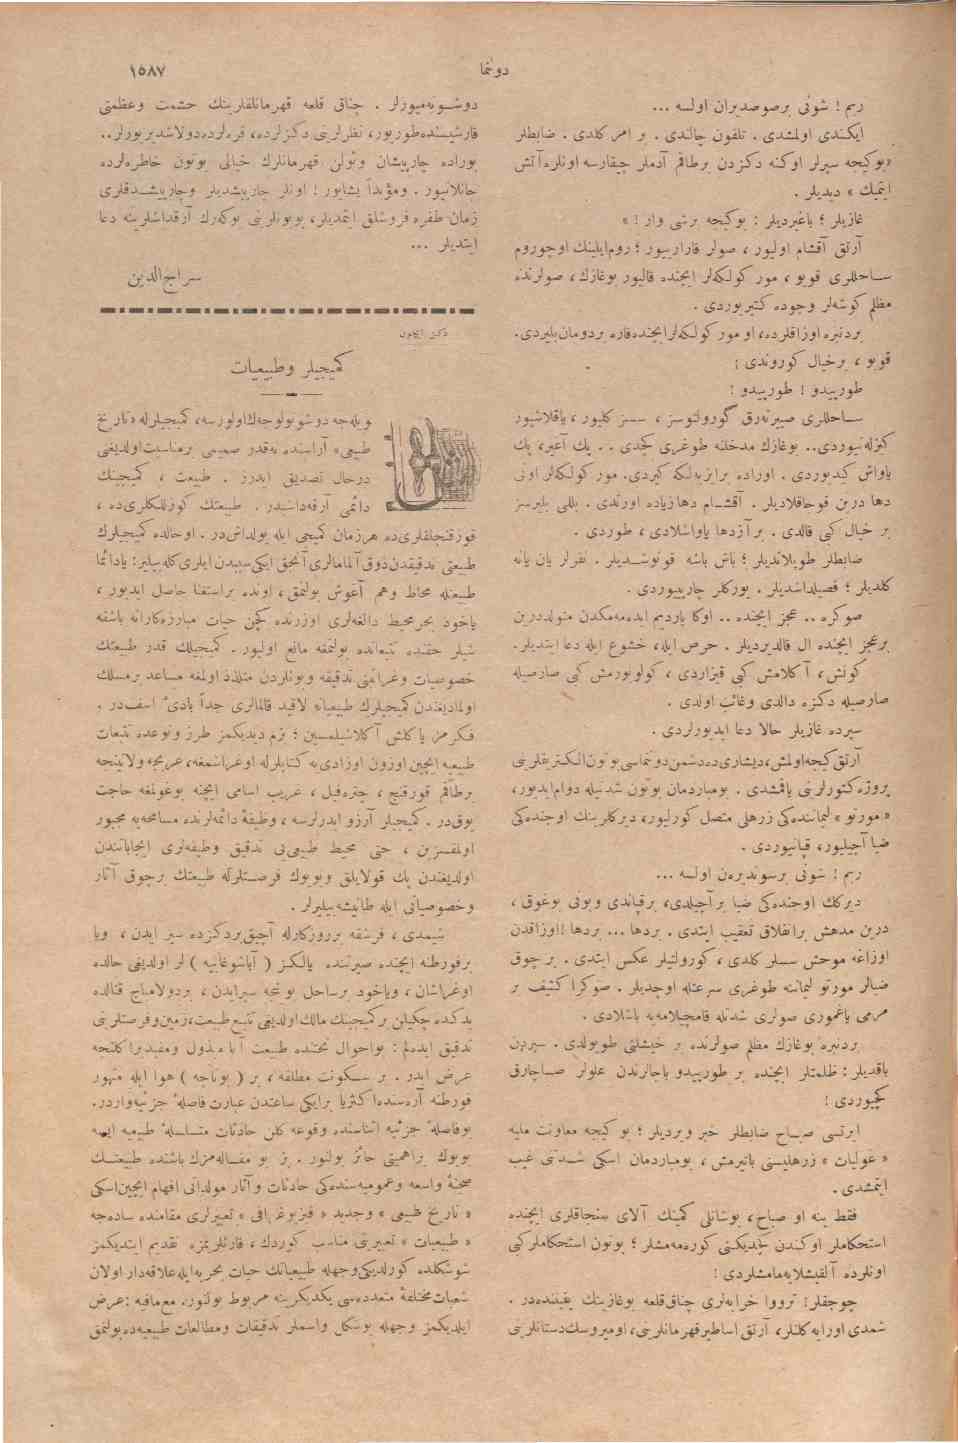 دونما
١٥٨٧
ربم ! شونی برصوصدیران اولسه ...
ایکندی اولمشدی . تلفون چالندی . بر امر کلدی . ضابطلر
«بوکیجه سپرلر اوکنه دکزدن برطاقم آدملر چیقارسه اونلره آتش
ایتمیك » دیدیلر .
غازیلر ؛ باغیردیلر : بوکیجه برشی وار ! »
آرتق آقشام اولیور ، صولر قارارییور ؛ روم‌ایلینك اوچوروم
ساحللری قویو ، مور کولکه‌لر ایچنده قالیور بوغازك ، صولرنده
مظلم کوشه‌لر وجوده کتیریوردی .
بردنبره اوزاقلرده، او مور کولکه‌لر ایچنده قاره بردومان بلیردی.
قویو ، برخیال کوروندی ؛
طورپیدو ! طورپیدو !
ساحللری صییرته‌رق گورولتوسز ، سسز کلیور ، یاقلاشیور
کیزله‌نیوردی.. بوغازك مدخلنه طوغری کچدی .. پك آغیر، پك
یاواش کیدیوردی . اوراده برابزبه‌لکه کیردی. مور کولکه‌لر اونی
دها درین قوجاقلادیلر . آقشام دها زیاده اورتدی . بللی بلیرسز
بر خیال کبی قالدی . بر آزدها یاواشلادی ، طوردی .
ضابطلر طوپلاندیلر ؛ باش باشه قونوشدیلر . نفرلر یان یانه
کلدیلر ؛ فصیلداشدیلر . یورکلر چارپییوردی .
صوکره .. عجز ایچنده .. اوکا یاردیم ایده‌مه‌مکدن متولددرین
برعجز ایچنده ال قالدیردیلر . حرص ایله، خشوع ایله دعا ایتدیلر.
کونش، آکلامش کبی قیزاردی ، کولویورمش کبی صارصیله
صارصیله دکزه دالدی وغائب اولدی .
سپرده غازیلر حالا دعا ایدیورلردی .
آرتق کیجه اولمش، دیشاری‌ده‌دشمن دونماسی بوتون الکتریقلرینی
پروژه‌کتورلرینی یاقمشدی . بومباردمان بوتون شدتیله دوام‌ایدیور،
« مورتو » لیماننده‌کی زرهلی متصل کورلیور، دیرکلرینك اوجنده‌کی
ضیا آچیلیور، قپانیوردی .
ربم ! شونی برسوندیرەن اولسه ...
دیرکك اوجنده‌کی ضیا بر آچیلدی، برقپاندی وبونی بوغوق ،
درین مدهش برانفلاق تعقیب ایتدی . بردها ... بردها !اوزاقدن
اوزاغه موحش سسلر کلدی ، کورولتیلر عکس ایتدی . بر چوق
ضیالر مورتو لیماننه طوغری سرعتله اوچدیلر . صوکرا کثیف بر
مرمی یاغموری صولری شدتله قامچیلامه‌یه باشلادی .
بردنبره بوغازك مظلم صولرنده بر خیشلتی طویولدی . سپردن
باقدیلر : ظلمتلر ایچنده بر طورپیدو باجالرندن علولر صاچارق
کچیوردی !
ایرتسی صباح ضابطلر خبر ویردیلر ؛ بو کیجه معاونت ملیه
« غولیات » زرهلیسنی باتیرمش ، بومباردمان اسکی شدتنی غیب
ایتمشدی .
فقط ینه او صباح، بوشانلی کمینك آلای سنجاقلری ایچنده
استحکاملر اوکندن کچدیکنی کوره‌مه‌مشلر ؛ بوتون استحکاملرکبی
اونلرده آلقیشلایه‌مامشلردی !
چوجقلر: تروواخرابه‌لری چناق‌قلعه بوغازینك یقیننده‌در .
شمدی اورایه کلنلر، آرتق اساطیر قهرمانلرینی، اومیروسك دستانلرینی
دوشونه‌میورلر . چناق قلعه قهرمانلقلرینك حشمت وعظمتی
قارشیسنده‌طوریور، نظرلرینی دکزلرده، قره‌لرده‌دولاشدیریورلر..
بوراده چارپیشان وئولن قهرمانلرك خیالی بوتون خاطره‌لرده
جانلانیور . ومؤبداً یشایور ! اونلر چارپیشدیلر وچارپیشدقلری
زمان طفره فروشلق ایتمدیلر، بویونلرینی بوکه‌رك آرقداشلرینه دعا
ایتدیلر ...
سراج‌الدین
دکز ایچون
کمیجیلر وطبیعیات
ویله‌جه دوشونولوجه‌ك‌اولورسه، کمیجیلرله «تاریخ
طبیعی» آراسنده نه‌قدر صمیمی برمناسبت‌اولدیغی
درحال تصدیق ایدرز . طبیعت ، کمیجینك
دائمی آرقه‌داشیدر . طبیعتك کوزللکلری‌ده ،
قورقنجلقلری‌ده هرزمان کمیجی ایله یولداش‌در . اوحالده کمیجیلرك
طبیعتی تدقیقدن‌ذوق آلمامالری آنجق ایکی‌سببدن ایلری‌کله‌بیلیر: یادائما
طبیعتله محاط وهم آغوش بولنمق، اونده براستغنا حاصل ایدیور ،
یاخود بحرمحیط دالغه‌لری اوزرنده کچن حیات مبارزه‌کارانه باشقه
شیلر حقنده تتبعاتده بولنمغه مانع اولیور . کمیجیلك قدر طبیعتك
خصوصیات وغرائبنی تدقیقه وبونلردن متلذذ اولمغه مساعد برمسلك
اولمادیغندن کمیجیلرك طبیعیاته لاقید قالمالری جداً بادی‌ٔ اسف‌در .
فکرمز یاکلش آکلاشیلمسین ؛ بزم دیدیکمز طرز ونوعده تتبعات
طبیعیه ایچین اوزون اوزادی‌یه کتابلرله اوغراشمغه، عربجه ولاتینجه
برطاقم قورقنج ، چتره‌فیل ، غریب اسامی ایچنه بوغولمغه حاجت
یوق‌در. کمیجیلر آرزو ایدرلرسه ، وظیفهٔ دائمه‌لرنده مسامحه‌یه مجبور
اولمقسزین ، حتی محیط طبیعی‌یی تدقیق وظیفه‌لری ایجاباتندن
اولدیغندن پك قولایلق وبویوك فرصتلرله طبیعتك برچوق آثار
وخصوصیاتی ایله طانیشه‌بیلیرلر .
شیمدی ، فرشقه برروزکارله آچیق‌بردکزده سیر ایدن ، ویا
برفورطنه ایچنده صیرتنده یالکز ( آباشوغابیه ) لر اولدیغی حالده
اوغراشان ، ویاخود برساحل بوینجه سیرایدن ، بردولامباج قنالده
یدکده چکیلن برکمیجینك مالك‌اولدیغی تتبع طبیعت، زمین‌وفرصتلرینی
تدقیق ایده‌لم : بواحوال تحتنده طبیعت آکا مبذول ومفیدبراکلنجه
عرض ایدر . بر سکونت مطلقه ، بر ( بوناچه ) هوا ایله متهور
فورطنه آره‌سنده‌اکثریا برایکی ساعتدن عبارت فاصله‌ٔ جزئیه‌واردر.
بوفاصله‌ٔ جزئیه اثناسنده وقوعه کلن حادثات متسلسله‌ٔ طبیعیه ایسه
بویوك براهمیتی حائز بولنور . بز بو مقاله‌مزك باشنده طبیعتك
صحنهٔ واسعه وعمومیه‌سنده‌کی حادثات وآثار مولداتی افهام ایچین‌اسکی
« تاریخ طبیعی » وجدید « فیزیوغرافی » تعبیرلری مقامنده ساده‌جه
« طبیعیات » تعبیرینی مناسب کوردك ، قارئلریمزه تقدیم ایتدیکمز
شوشکلده کورلدیکی‌وجهله طبیعیاتك حیات بحریه‌ایله‌علاقه‌دار اولان
شعبات مختلفهٔ متعدده‌سی یکدیکرینه مربوط بولنور. مع‌مافیه :عرض
ایلدیکمز وجهله بوشکل واسملر تدقیقات ومطالعات طبیعیه‌ده‌بولنمق